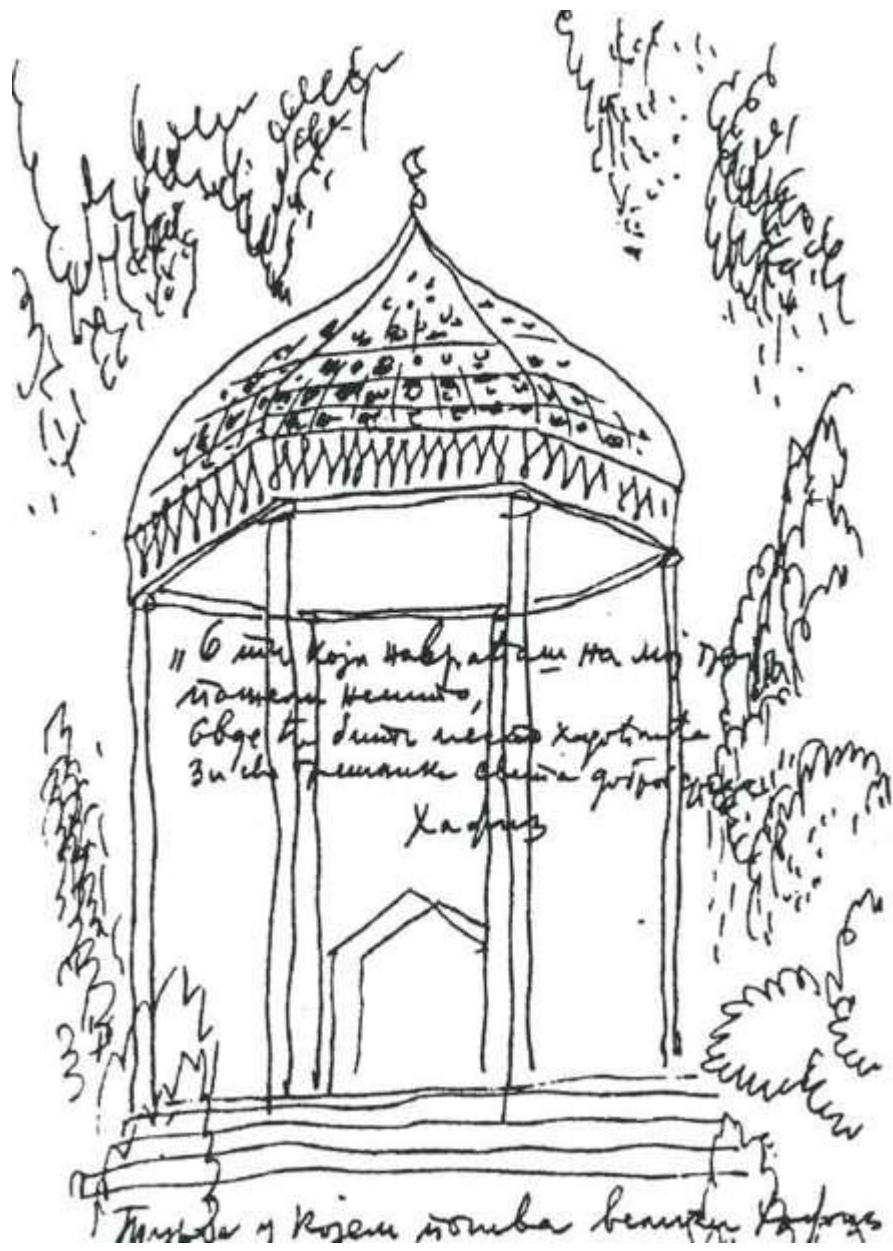 „О ти који навраћаш на мој гроб
пожели нешто,
Овде ће бити место
За све грешнике света доброг срца"
Хафиз
у којем почива велики Хафиз